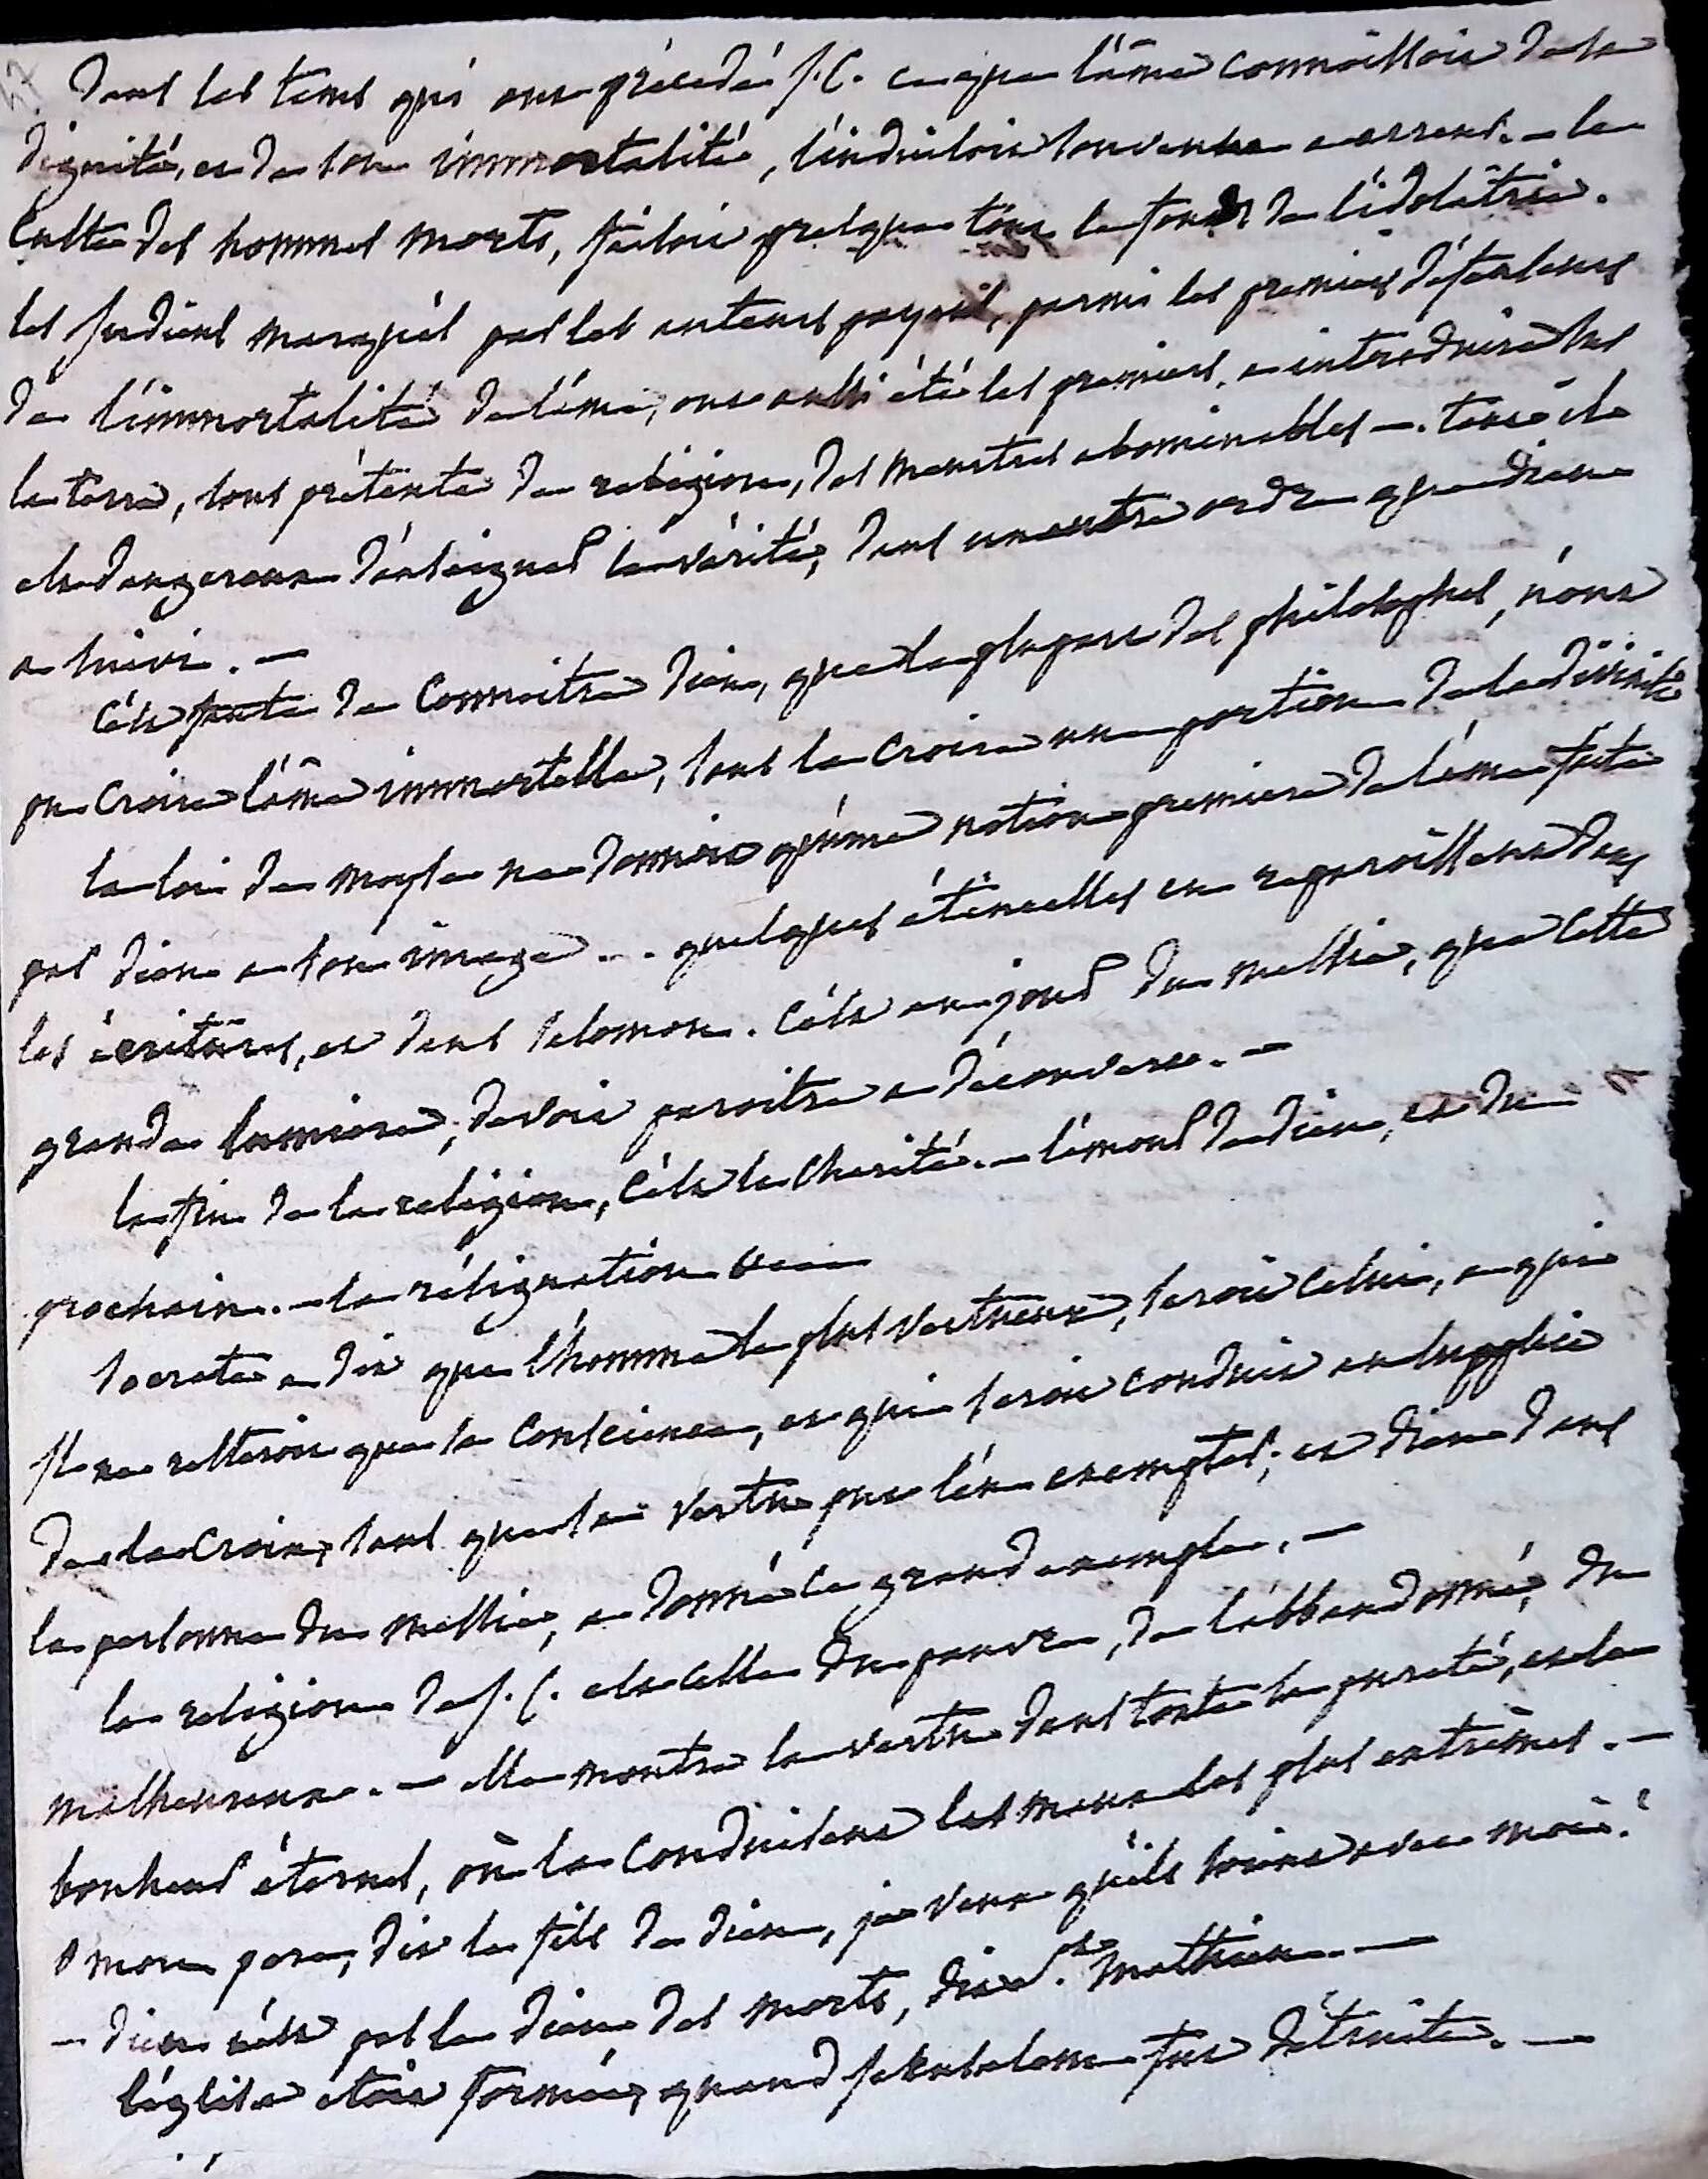 Dans les tems qui ont précédé J.C. ce que l'âme connoissoit de sa
dignité, et de son immortalité, l'induisoit souvent a erreur. — le
culte des hommes morts, faisoit presque tout le fond de l'idolâtrie.
les indiens marqués par les auteurs payens, parmi les premiers défenseurs
de l'immortalité de l'âme, ont aussi été les premiers, a introduire sur
la terre, sous prétexte de religion, des meurtres abominables —. tant il
est dangereux d'enseigner la vérité, dans un autre ordre que dieu
a suivi. —
C'est faute de connoitre dieu, que la plupart des philosophes, n'ont
pu croire l'âme immortelle, sans la croire une portion de la divinité
la loi de moyse ne donnoit qu'une notion premiere de l'âme faite
par dieu a son image... quelques étincelles en reparoissent dans
les écritures, et dans salomon. C'est au jour du messie, que cette
grande lumiere, devoit paroitre a découvert. —
la fin de la religion, c'est la charité. — l'amour de dieu, et du
prochain. — la résignation
Socrate a dit que l'homme le plus vertueux, seroit celui, a qui
il ne resteroit que sa conscience, et qui seroit conduit au supplice
de la croix, sans que sa vertu put l'en exempter; et dieu dans
la personne du messie, a donné ce grand exemple. —
la religion de J.C. est celle du pauvre, de l'abbandonné, du
malheureux. — elle montre la vertu dans toute sa pureté, et le
bonheur éternel, où la conduisent les maux les plus extrêmes. —
o mon pere, dit le fils de dieu, je veux qu'ils soient avec moi.
— dieu n'est pas le dieu des morts, dit St. Mathieu. —
l'église étoit formée, quand Jérusalem fut détruite. —